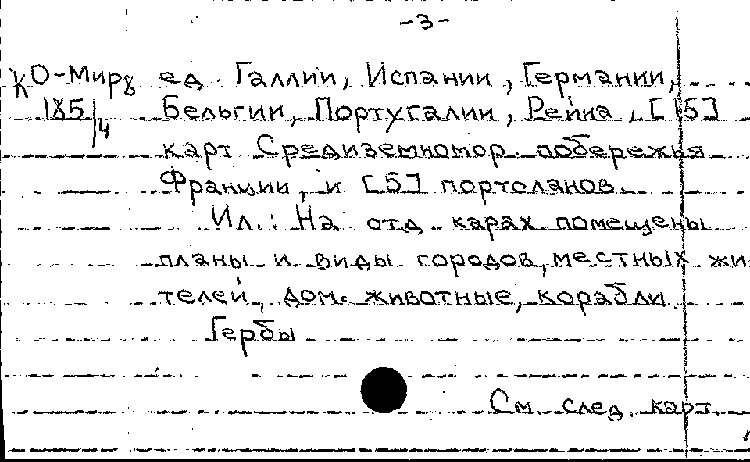 -3-
КО-Мир8 ед. Галлии, Испании, Германии,
185/4 Бельгии, Португалии, Рейна, [15]
карт Средиземномор. побережья
Франции, и [5] портоланов.
Ил.: На отд. карах помещены
планы и виды городов, местных жи-
телей, дом. животные, корабли
Гербы
См. след. карт.